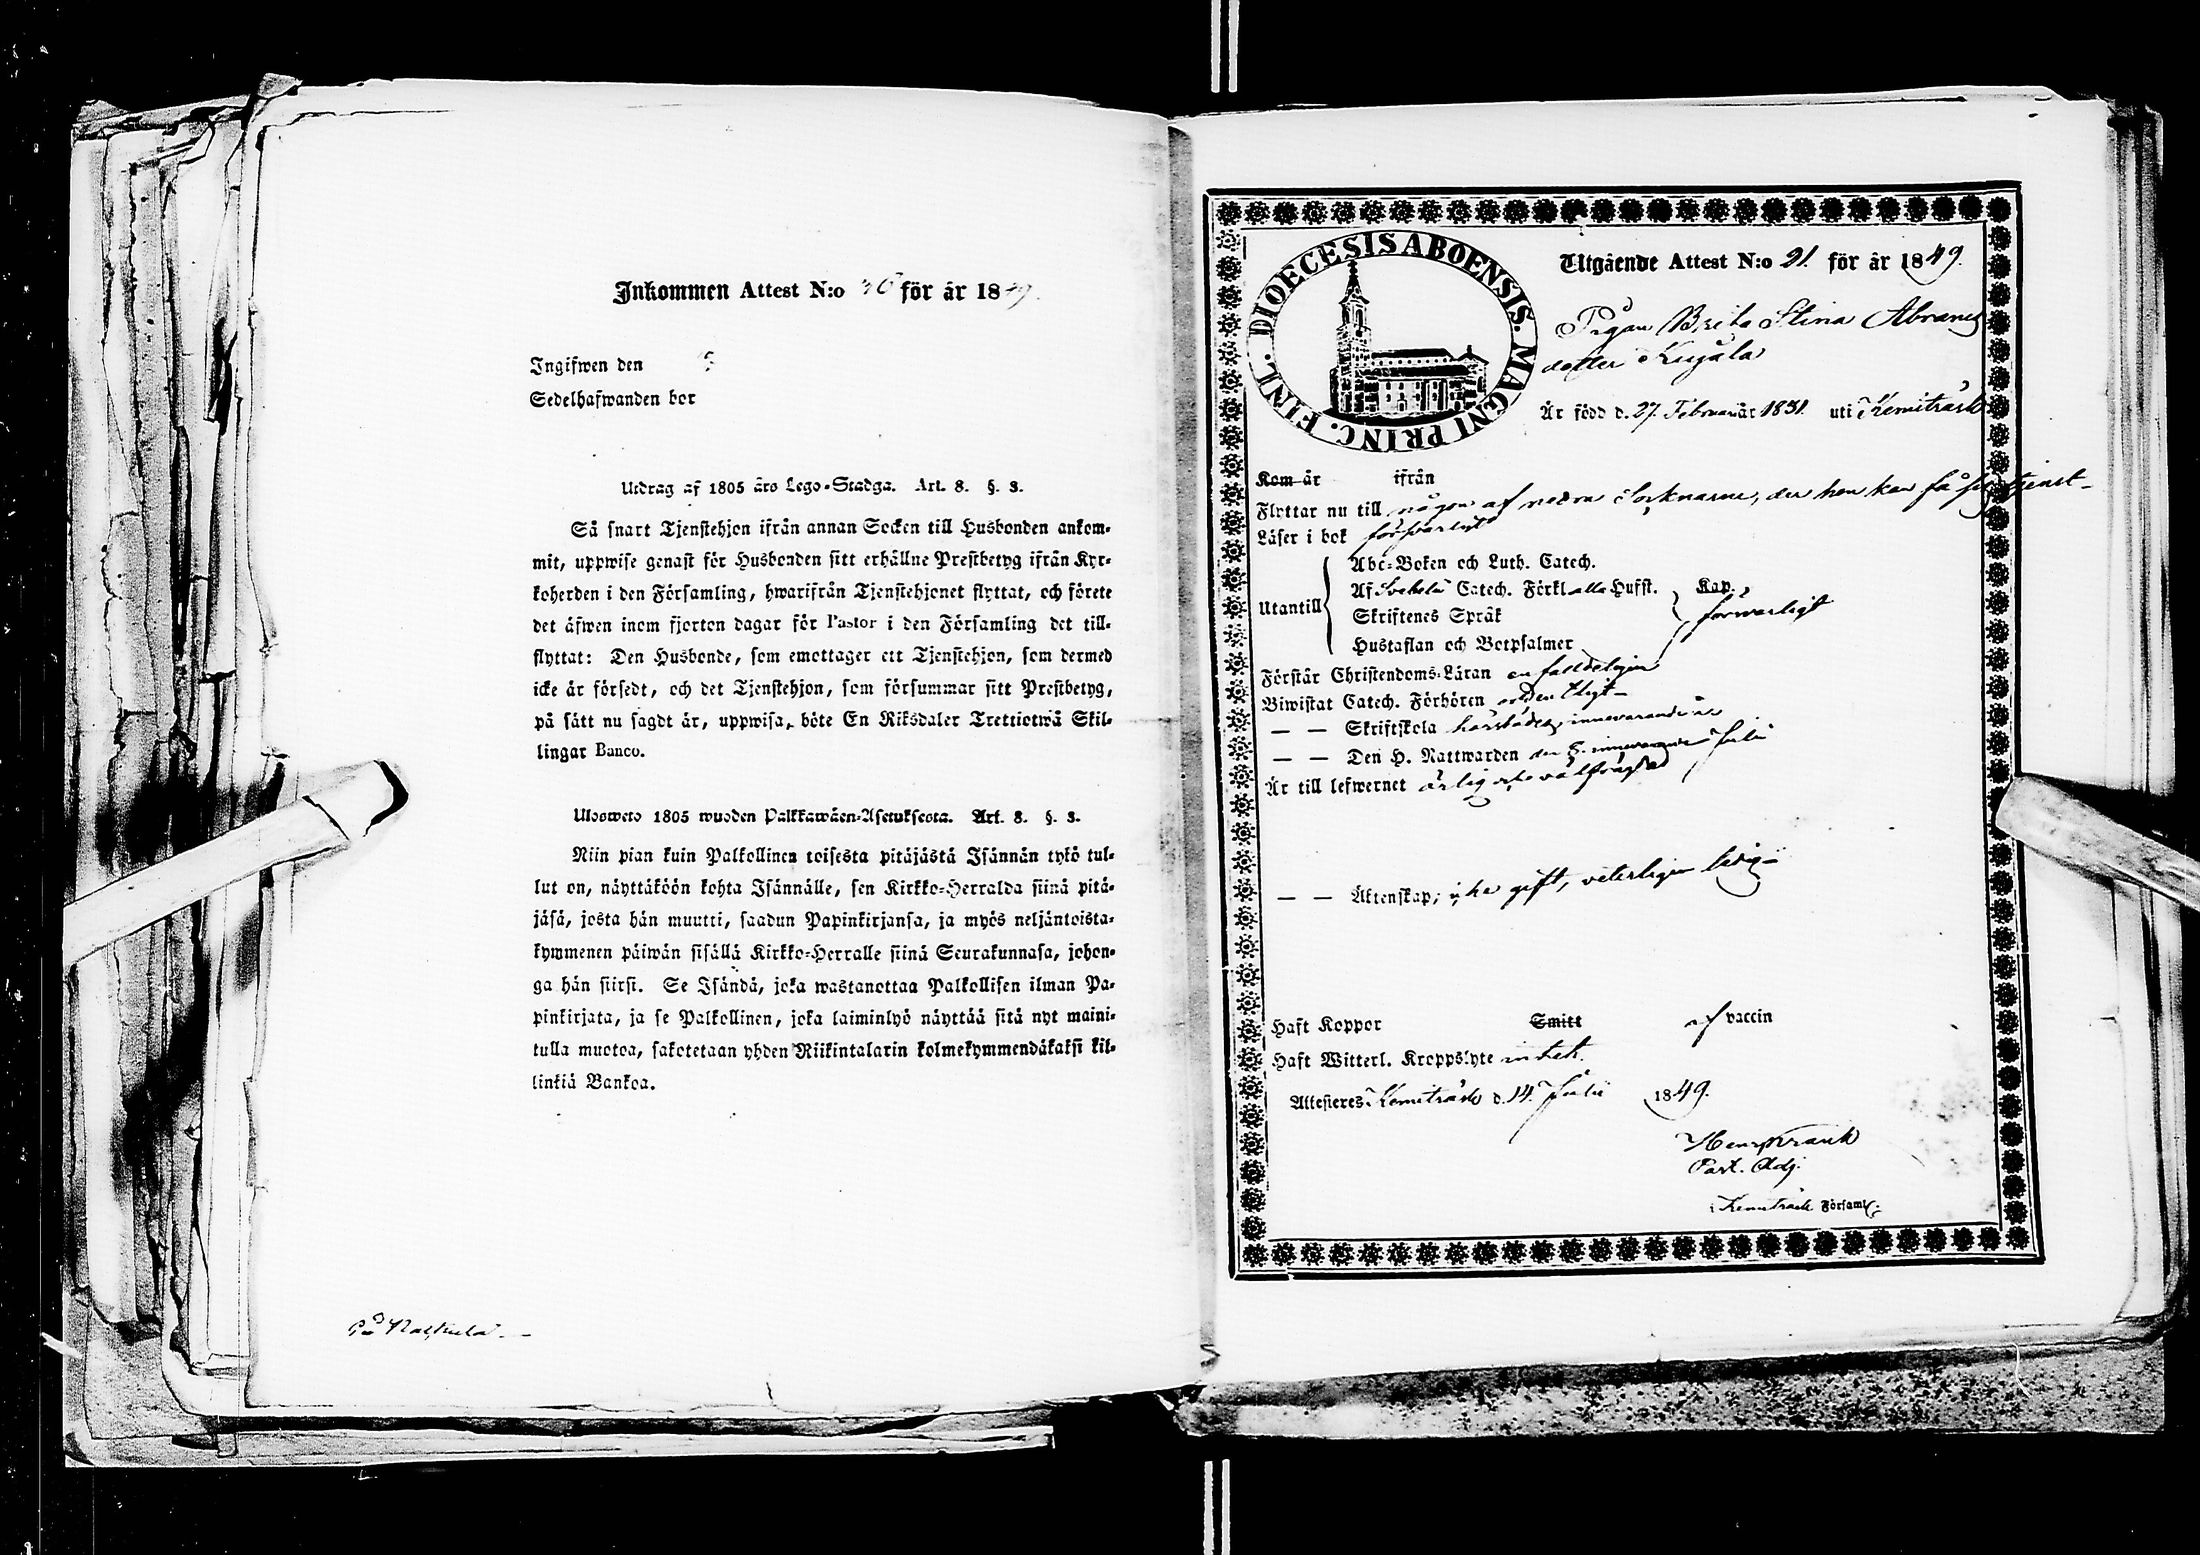 Inkommen Attest N:o 46 för år 1849.
Ingifwen den
Sedelhafwanden bor
Utdrag af 1805 års Lego-Stadga. Art. 8. §. 3.
Så snart Tjenstehjon ifrån annan Socken till Husbonden ankom-
mit, uppwise genast för Husbonden sitt erhållne Prestbetyg ifrån Kyr-
koherden i den Församling, hwarifrån Tjenstehjonet flyttat, och förete
det äfwen inom fjorton dagar för Pastor i den Församling det till-
flyttat: Den Husbonde, som emottager ett Tjenstehjon, som dermed
icke är försedt, och det Tjenstehjon, som försummar sitt Prestbetyg,
på sätt nu sagdt är, uppwisa, böte En Riksdaler Trettiotwå Skil-
lingar Banco.
Ulosweto 1805 wuoden Palkkawäen-Asetuksesta. Art. 8. §. 3.
Niin pian kuin Palkollinen toisesta pitäjästä Isännän tykö tul-
lut on, näyttäköön kohta Isännälle, sen Kirkko-Herralda siinä pitä-
jäsä, josta hän muutti, saadun Papinkirjansa, ja myös neljäntoista-
kymmenen päiwän sisällä Kirkko-Herralle siinä Seurakunnasa, johon-
ga hän siirsi. Se Isändä, joka wastanottaa Palkollisen ilman Pa-
pinkirjata, ja se Palkollinen, joka laiminlyö näyttää sitä nyt maini-
tulla muotoa, sakotetaan yhden Riikintalarin kolmekymmendäkaksi kil-
linkiä Bankoa.
DIOECESIS ABOENSIS. MAGNI PRINC. FINL.
Utgående Attest N:o 91. för år 1849.
Pigan Brita Stina Abrams
dotter Kujala
Är född d. 27. Februari år 1831. uti Kemiträsk
Kom år ifrån
Flyttar nu till någon af nedra Soknarne, der hon kan få sig tjenst-
Läser i bok försvarligt
Abc-Boken och Luth. Catech.
Af Svebelii Catech. Förkl alla Hufst. Kap.
Utantill Skriftenes Språk försvarligt
Hustaflan och Botpsalmer
Förstår Christendoms-Läran enfaldeligen
Biwistat Catech. Förhören ordentligt
— — Skriftskola härstädes innevarande år
— — Den H. Nattwarden den 8. innevarande Julii
Är till lefwernet ärlig och välfrägdad
— — Äktenskap, icke gift, veterligen ledig
Haft Koppor Smitt af vaccin
Haft Witterl. Kroppslyte intet.
Attesteres Kemiträsk d. 14. Julii 1849.
Henr. Frank
Past. Adj.
i Kemiträsk Församl.